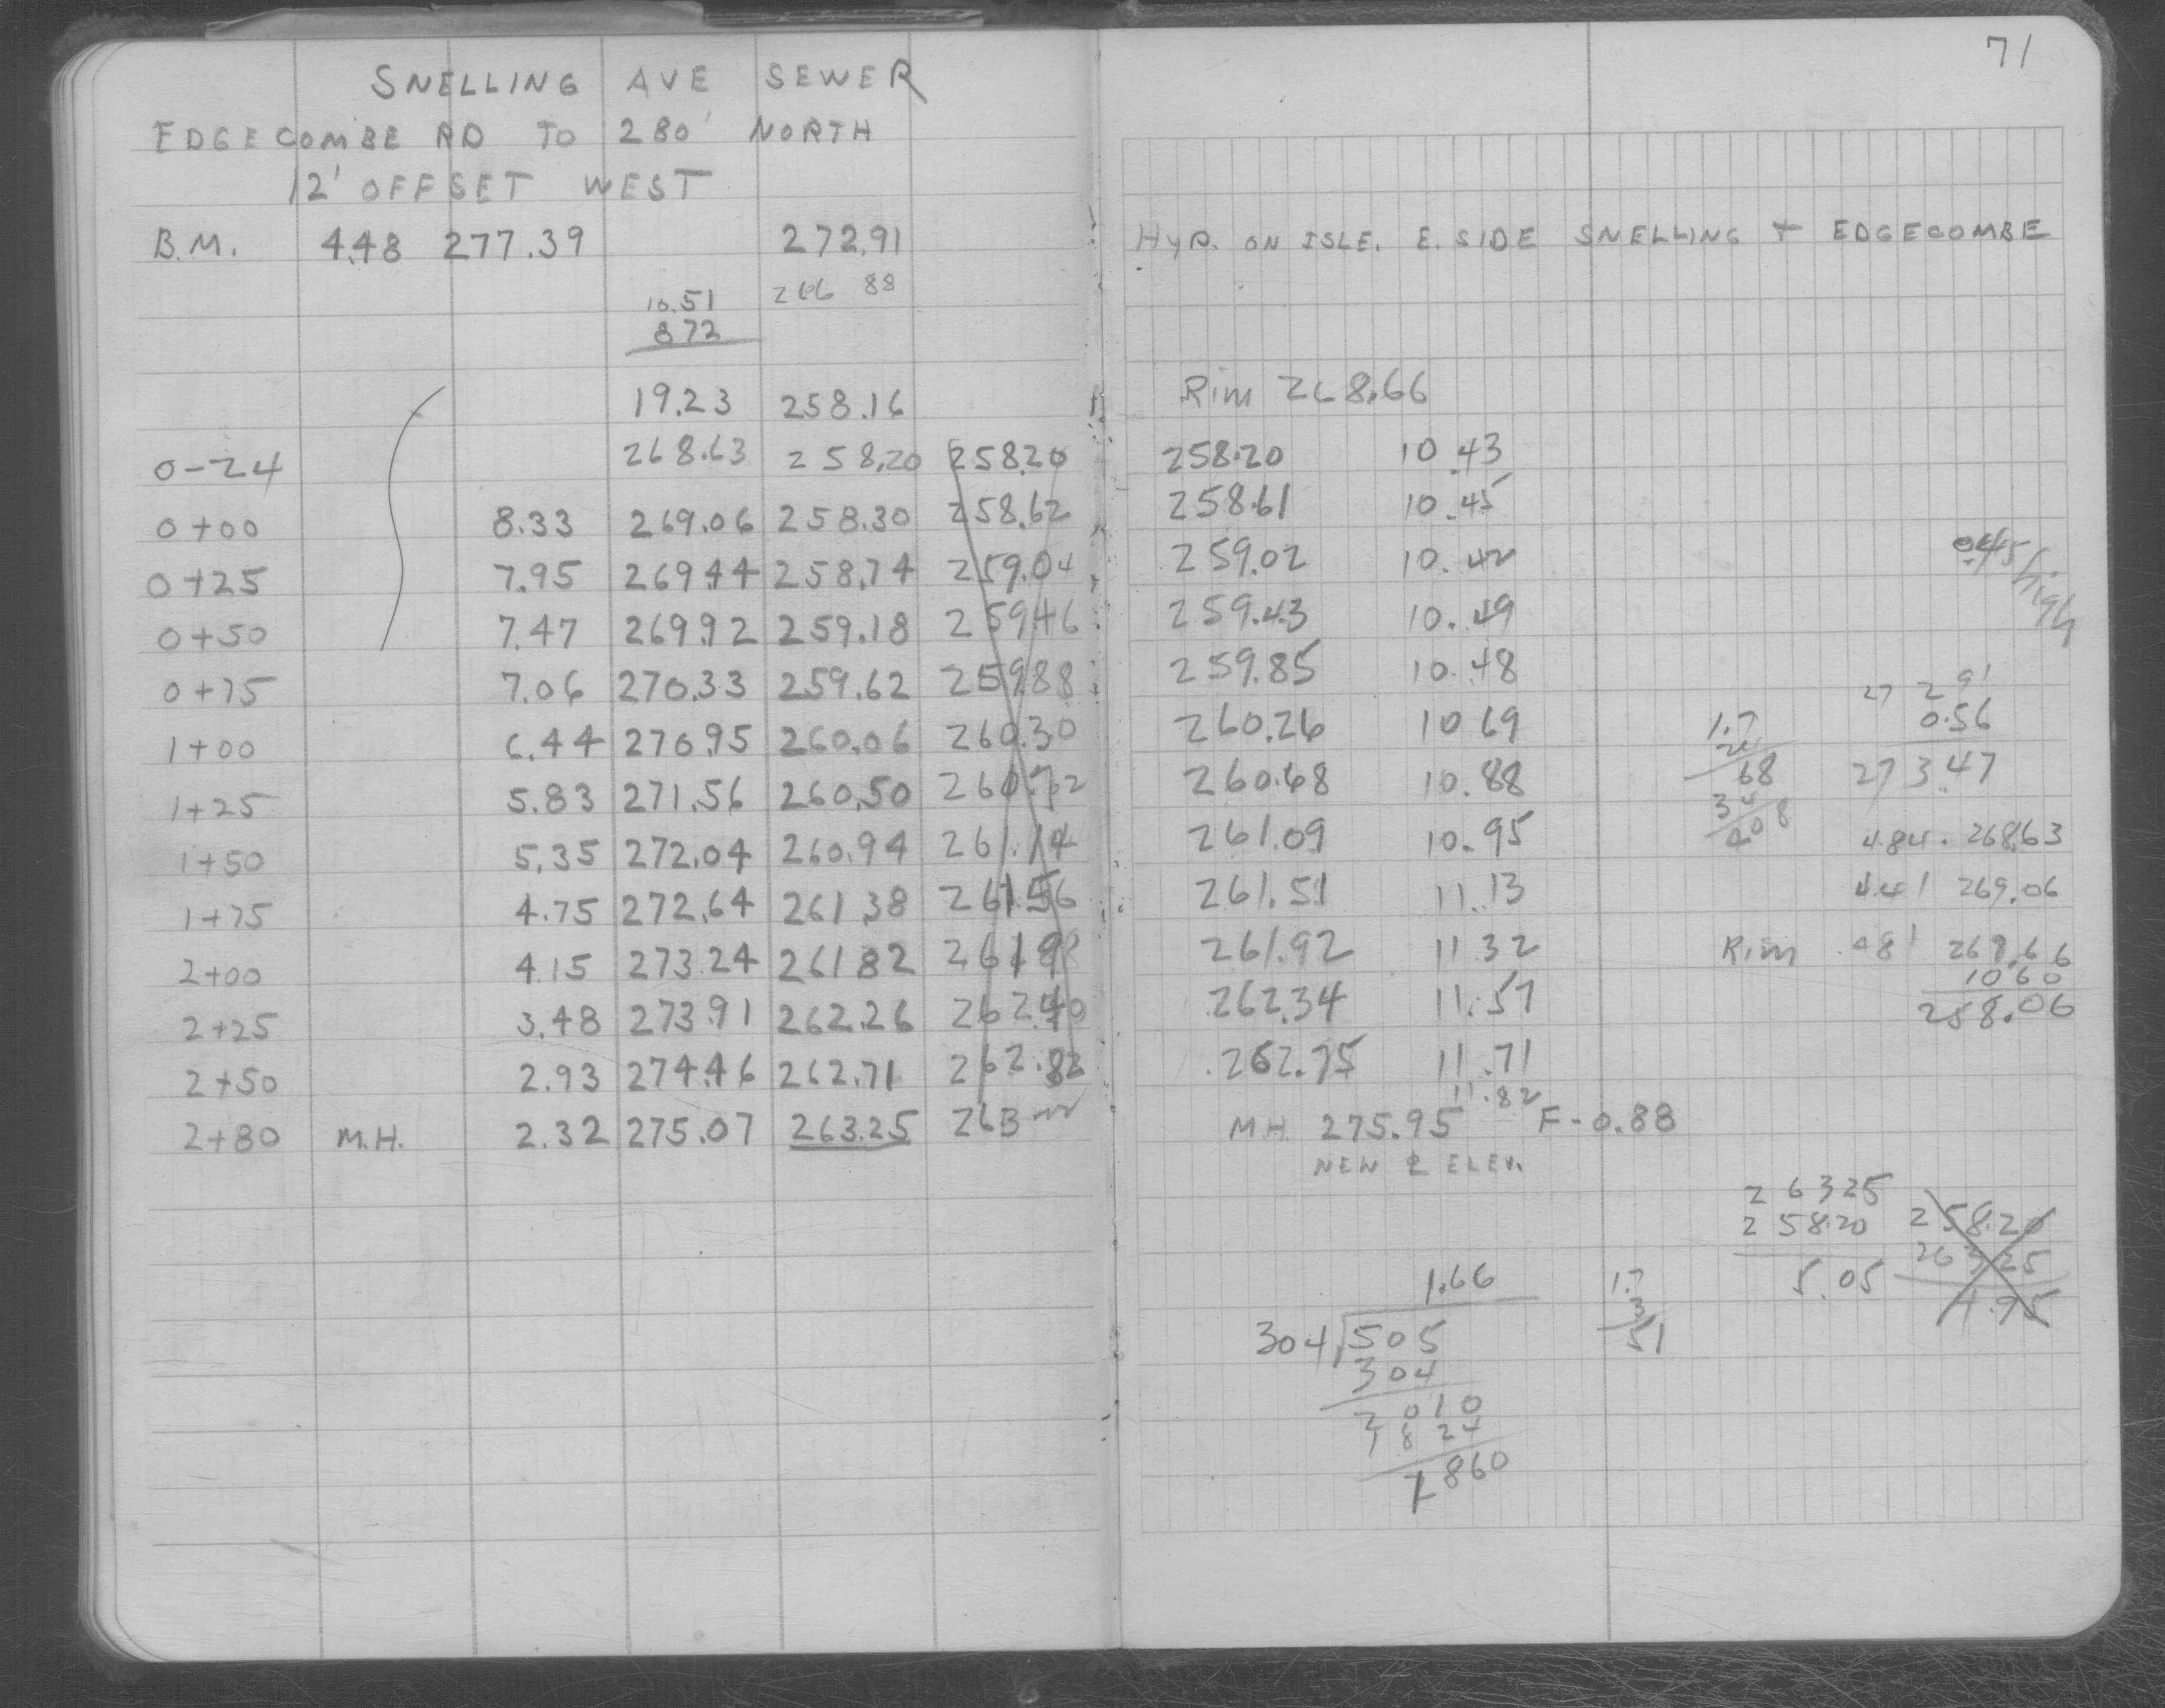 SNELLING AVE SEWER
EDGECOMBE RD TO 280' NORTH
12' OFFSET WEST
B.M. 4.48 277.39 272.91
10.51 266 88
872
19.23 258.16
0-24 268.63 258.20 258.20
0+00 8.33 269.06 258.30 258.62
0+25 7.95 269.44 258.74 259.04
0+50 7.47 269.92 259.18 259.46
0+75 7.06 270.33 259.62 259.88
1+00 6.44 270.95 260.06 260.30
1+25 5.83 271.56 260.50 260.72
1+50 5.35 272.04 260.94 261.14
1+75 4.75 272.64 261.38 261.56
2+00 4.15 273.24 261.82 261.98
2+25 3.48 273.91 262.26 262.40
2+50 2.93 274.46 262.71 262.82
2+80 M.H. 2.32 275.07 263.25 263
71
HYD. ON ISLE. E. SIDE SNELLING + EDGECOMBE
Rim 268.66
258.20 10.43
258.61 10.45
259.02 10.42
259.43 10.49
259.85 10.48
260.26 10.69
260.68 10.88
261.09 10.95
261.51 11.13
261.92 11.32
262.34 11.57
262.75 11.71
11.82
M.H. 275.95 F-0.88
NEW ℄ ELEV.
0.45 high
272 91
0.56
273.47
4.84 268.63
4.41 269.06
Rim .481 268.66
10 60
258.06
1.7
24
68
34
408
263 25
258.20
5.05
258.20
263 25
4.95
1.7
3
51
1.66
304 505
304
2010
1824
1860